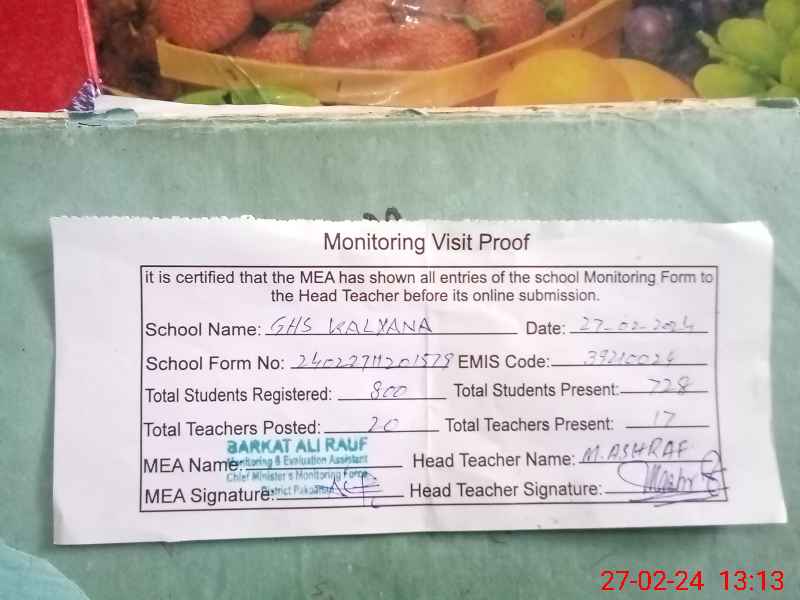 Monitoring Visit Proof
it is certified that the MEA has shown all entries of the school Monitoring Form to
the Head Teacher before its online submission.
School Name: GHS KALYANA Date: 27-02-2024
School Form No: 24022711201579 EMIS Code: 39210024
Total Students Registered: 800 Total Students Present: 728
Total Teachers Posted: 20 Total Teachers Present: 17
BARKAT ALI RAUF
Monitoring & Evaluation Assistant
MEA Name: Head Teacher Name: M. ASHRAF
Chief Minister's Monitoring Force
District Pakpattan
MEA Signature: Head Teacher Signature:
27-02-24 13:13